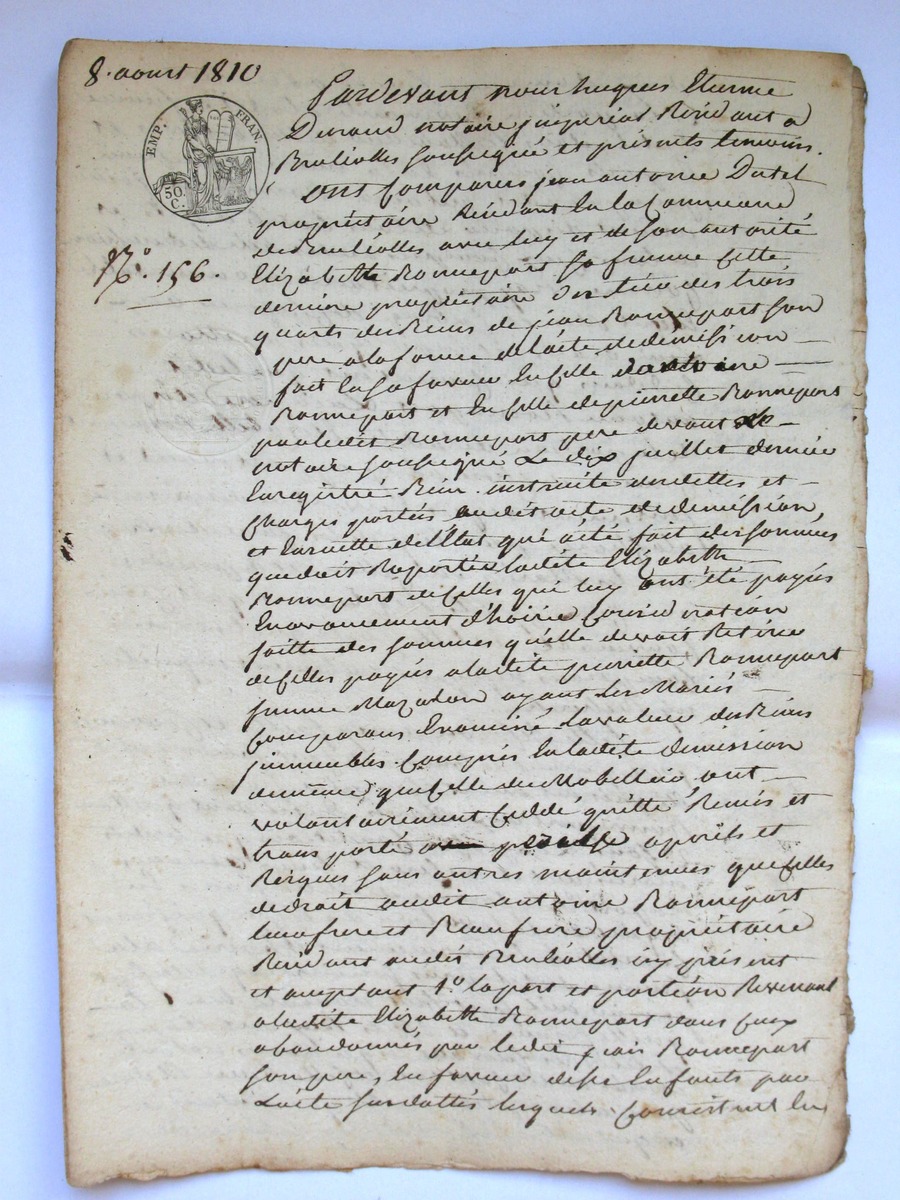 8. aoust 1810
EMP. FRAN.
50. C.
N.° 156.
Pardevant nous hugues Etienne
Durand notaire jmperial Residant a
Brulioles soussigné et presents temoins.
ont Comparus jean antoine Dutel
propriétaire Residant En la Commune
de Brulioles avec luy et de son autorité
Elizabette Ronnepart sa femme Cette
derniere propriétaire d'un tiers des trois
quarts des Biens de jean Ronnepart son
pere a la forme de l'acte de demission
fait En sa faveur En Celle d'antoine
Ronnepart et En Celle de pierrette Ronnepart
par ledit Ronnepart pere devant le
notaire soussigné Le dix juillet dernier
Enregistré Bien instruite des dettes et
Charges portés audit acte de demission,
et Ensuitte de l'Etat qui a été fait des sommes
que doit Raporter ladite Elizabette
Ronnepart de Celles qui luy ont été payés
En avancement d'hoirie Considération
faitte des sommes qu'elle devoit Retirer
de Celles payés a ladite pierrette Ronnepart
femme Mazalon ayant les Mariés
Comparans Examiné la valeur des Biens
jmmeubles Compris En ladite demission
de même que Celle du Mobillier ont
volontairement Ceddé quitté Remis et
transporté a perils et
Risques sans autres maintenues que Celles
de droit audit antoine Ronnepart
leur frere et Beaufrere propriétaire
Residant audit Brulioles icy présent
et acceptant 1.° la part et portion Revenant
a ladite Elizabette Ronnepart dans Ceux
abandonnés par ledit jean Ronnepart
son pere, En faveur de ses Enfants par
L'acte susdatté lesquels Consistent En